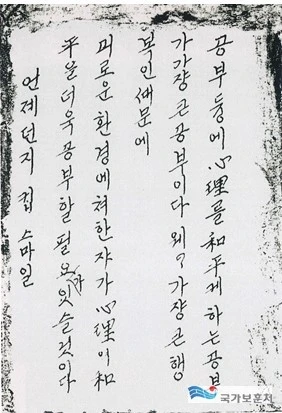 공부등에 心理를 和平케 하는 공부
가 가쟝 큰 공부이다 왜? 가쟝 큰 행
복인 때문에
괴로운 환경에 쳐한 쟈가 心理이 和
平은 더욱 공부할 필요가 잇슬것이다
언제던지 깁 스마일
국가보훈처